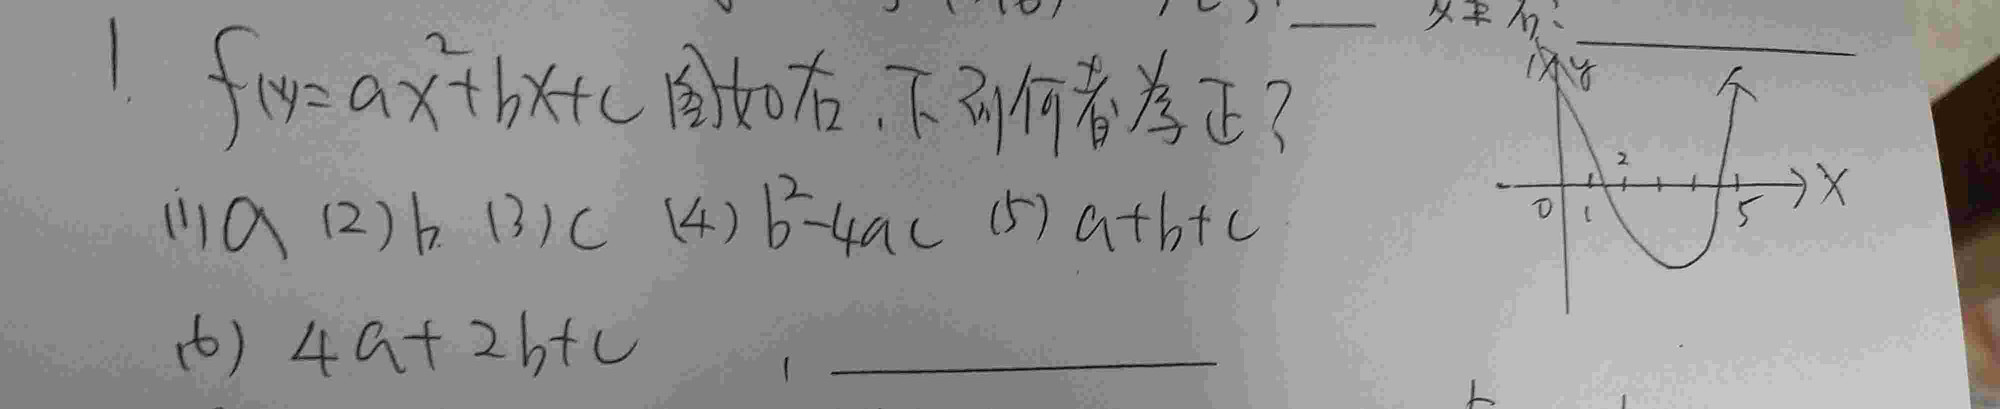 1. f(x)=ax²+bx+c 图如右,下列何者為正?
(1) a (2) b (3) c (4) b²-4ac (5) a+b+c
(6) 4a+2b+c
y
2
X
0 1 5